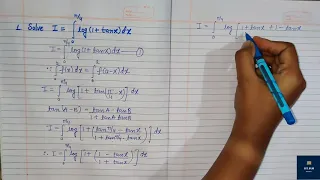 1. Solve I = ∫₀^(π/4) log(1+tanx)dx
I = ∫₀^(π/4) log(1+tanx)dx — ①
∵ ∫₀^a f(x)dx = ∫₀^a f(a-x)dx
I = ∫₀^(π/4) log[1 + tan(π/4 - x)] dx
tan(A-B) = (tanA - tanB)/(1+tanA tanB)
I = ∫₀^(π/4) log[1 + (tanπ/4 - tanx)/(1+tanπ/4 · tanx)] dx
∴ I = ∫₀^(π/4) log[1 + (1 - tanx)/(1 + tanx)] dx
I = ∫₀^(π/4) log[1+tanx + 1-tanx